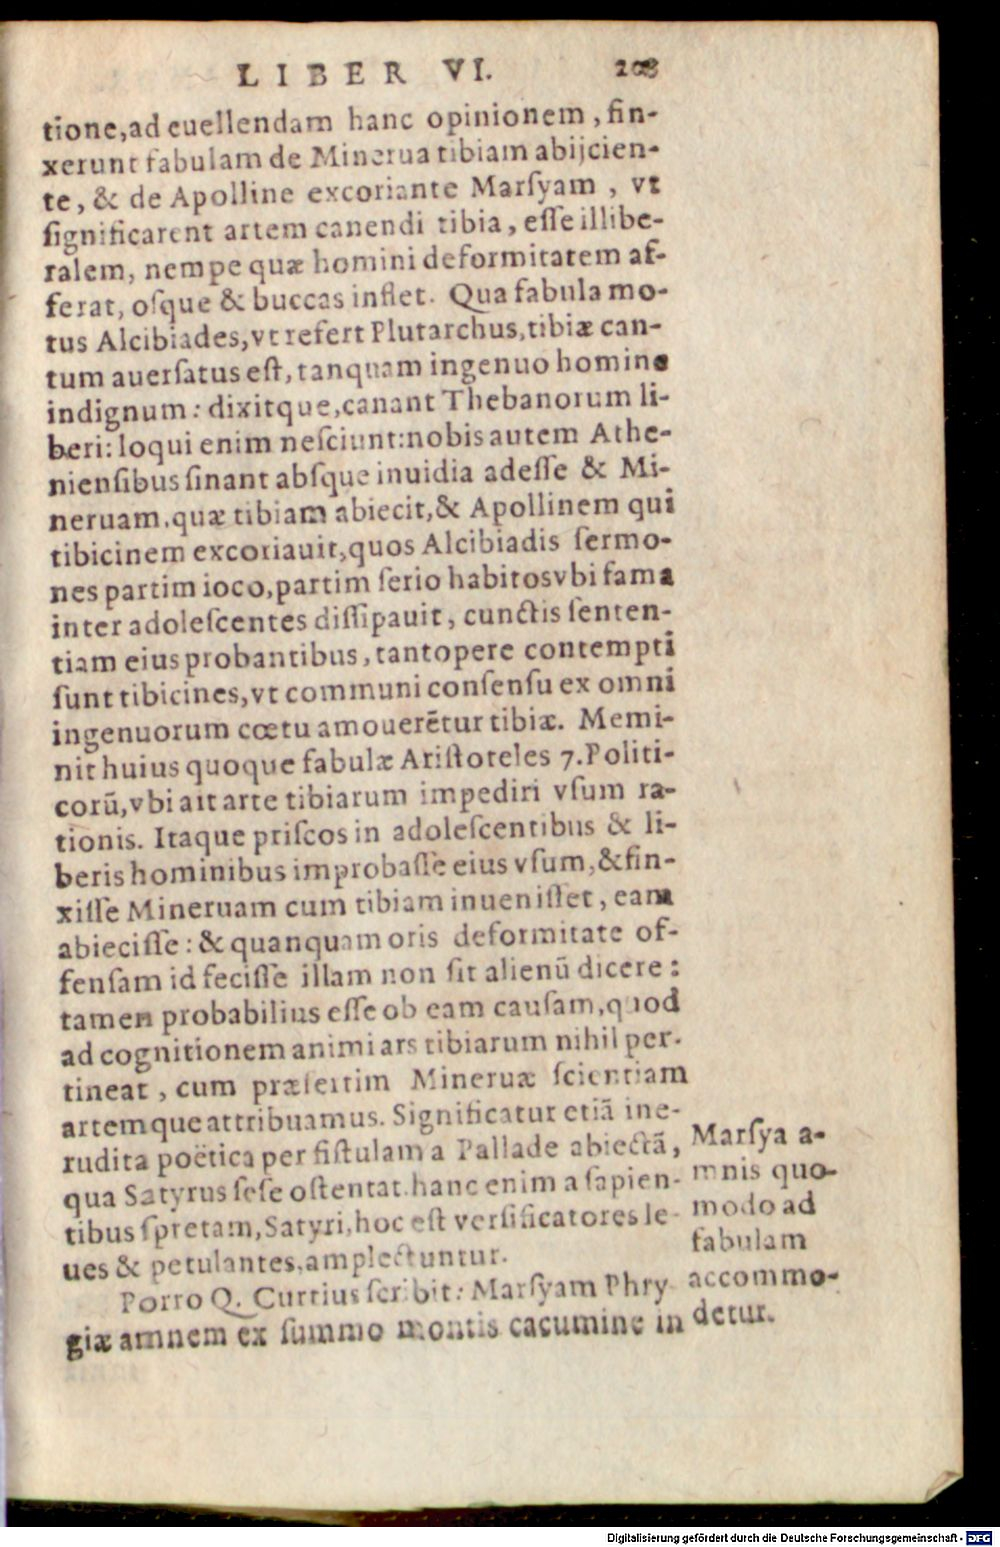 LIBER VI. 208
tione,ad euellendam hanc opinionem, fin-
xerunt fabulam de Minerua tibiam abijcien-
te, & de Apolline excoriante Marſyam, vt
ſignificarent artem canendi tibia, eſſe illibe-
ralem, nempe quæ homini deformitatem af-
ferat, oſque & buccas inflet. Qua fabula mo-
tus Alcibiades,vt refert Plutarchus,tibiæ can-
tum auerſatus eſt, tanquam ingenuo homine
indignum: dixitque,canant Thebanorum li-
beri: loqui enim neſciunt:nobis autem Athe-
nienſibus ſinant abſque inuidia adeſſe & Mi-
neruam,quæ tibiam abiecit,& Apollinem qui
tibicinem excoriauit,quos Alcibiadis ſermo-
nes partim ioco,partim ſerio habitos vbi fama
inter adoleſcentes diſſipauit, cunctis ſenten-
tiam eius probantibus, tantopere contempti
ſunt tibicines,vt communi conſenſu ex omni
ingenuorum cœtu amouerẽtur tibiæ. Memi-
nit huius quoque fabulæ Ariſtoteles 7.Politi-
corũ,vbi ait arte tibiarum impediri vſum ra-
tionis. Itaque priſcos in adoleſcentibus & li-
beris hominibus improbaſſe eius vſum,& fin-
xiſſe Mineruam cum tibiam inueniſſet, eam
abieciſſe: & quanquam oris deformitate of-
fenſam id feciſſe illam non ſit alienũ dicere:
tamen probabilius eſſe ob eam cauſam,quod
ad cognitionem animi ars tibiarum nihil per-
tineat, cum præſertim Mineruæ ſcientiam
artemque attribuamus. Significatur etiã ine-
rudita poëtica per fiſtulam a Pallade abiectã,
qua Satyrus ſeſe oſtentat.hanc enim a ſapien-
tibus ſpretam,Satyri,hoc eſt verſificatores le-
ues & petulantes,amplectuntur.
Porro Q. Curtius ſcribit: Marſyam Phry-
giæ amnem ex ſummo montis cacumine in
Marſya a-
mnis quo-
modo ad
fabulam
accommo-
detur.
Digitalisierung gefördert durch die Deutsche Forschungsgemeinschaft - DFG